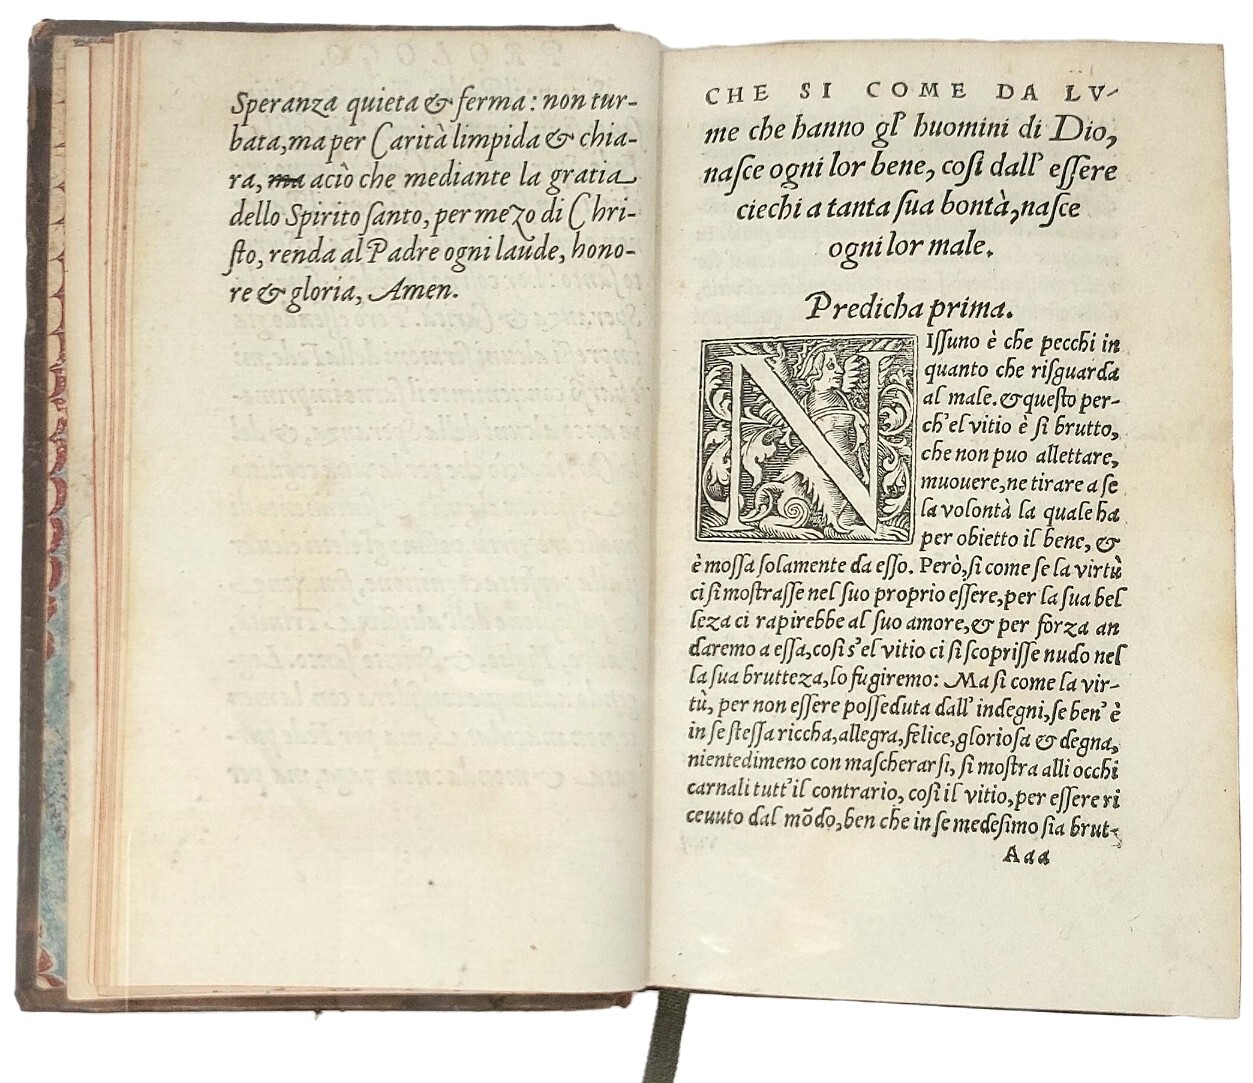 Speranza quieta & ferma: non tur-
bata, ma per Carità limpida & chia-
ra, ma aciò che mediante la gratia
dello Spirito ſanto, per mezo di Chri-
ſto, renda al Padre ogni laude, hono-
re & gloria, Amen.
CHE SI COME DA LV-
me che hanno gl' huomini di Dio,
naſce ogni lor bene, coſi dall' eſſere
ciechi a tanta ſua bontà, naſce
ogni lor male.
Predicha prima.
NIſſuno è che pecchi in
quanto che riſguarda
al male. & queſto per-
ch'el vitio è ſi brutto,
che non puo allettare,
muouere, ne tirare a ſe
la volontà la quale ha
per obietto il bene, &
è moſſa ſolamente da eſſo. Però, ſi come ſe la virtù
ci ſi moſtraſſe nel ſuo proprio eſſere, per la ſua bel
leza ci rapirebbe al ſuo amore, & per forza an
daremo a eſſa, coſi s'el vitio ci ſi ſcopriſſe nudo nel
la ſua brutteza, lo fugiremo: Ma ſi come la vir-
tù, per non eſſere poſſeduta dall' indegni, ſe ben' è
in ſe ſteſſa riccha, allegra, felice, glorioſa & degna,
nientedimeno con maſcherarſi, ſi moſtra alli occhi
carnali tutt' il contrario, coſi il vitio, per eſſere ri
ceuuto dal mõdo, ben che in ſe medeſimo ſia brut-
Aaa